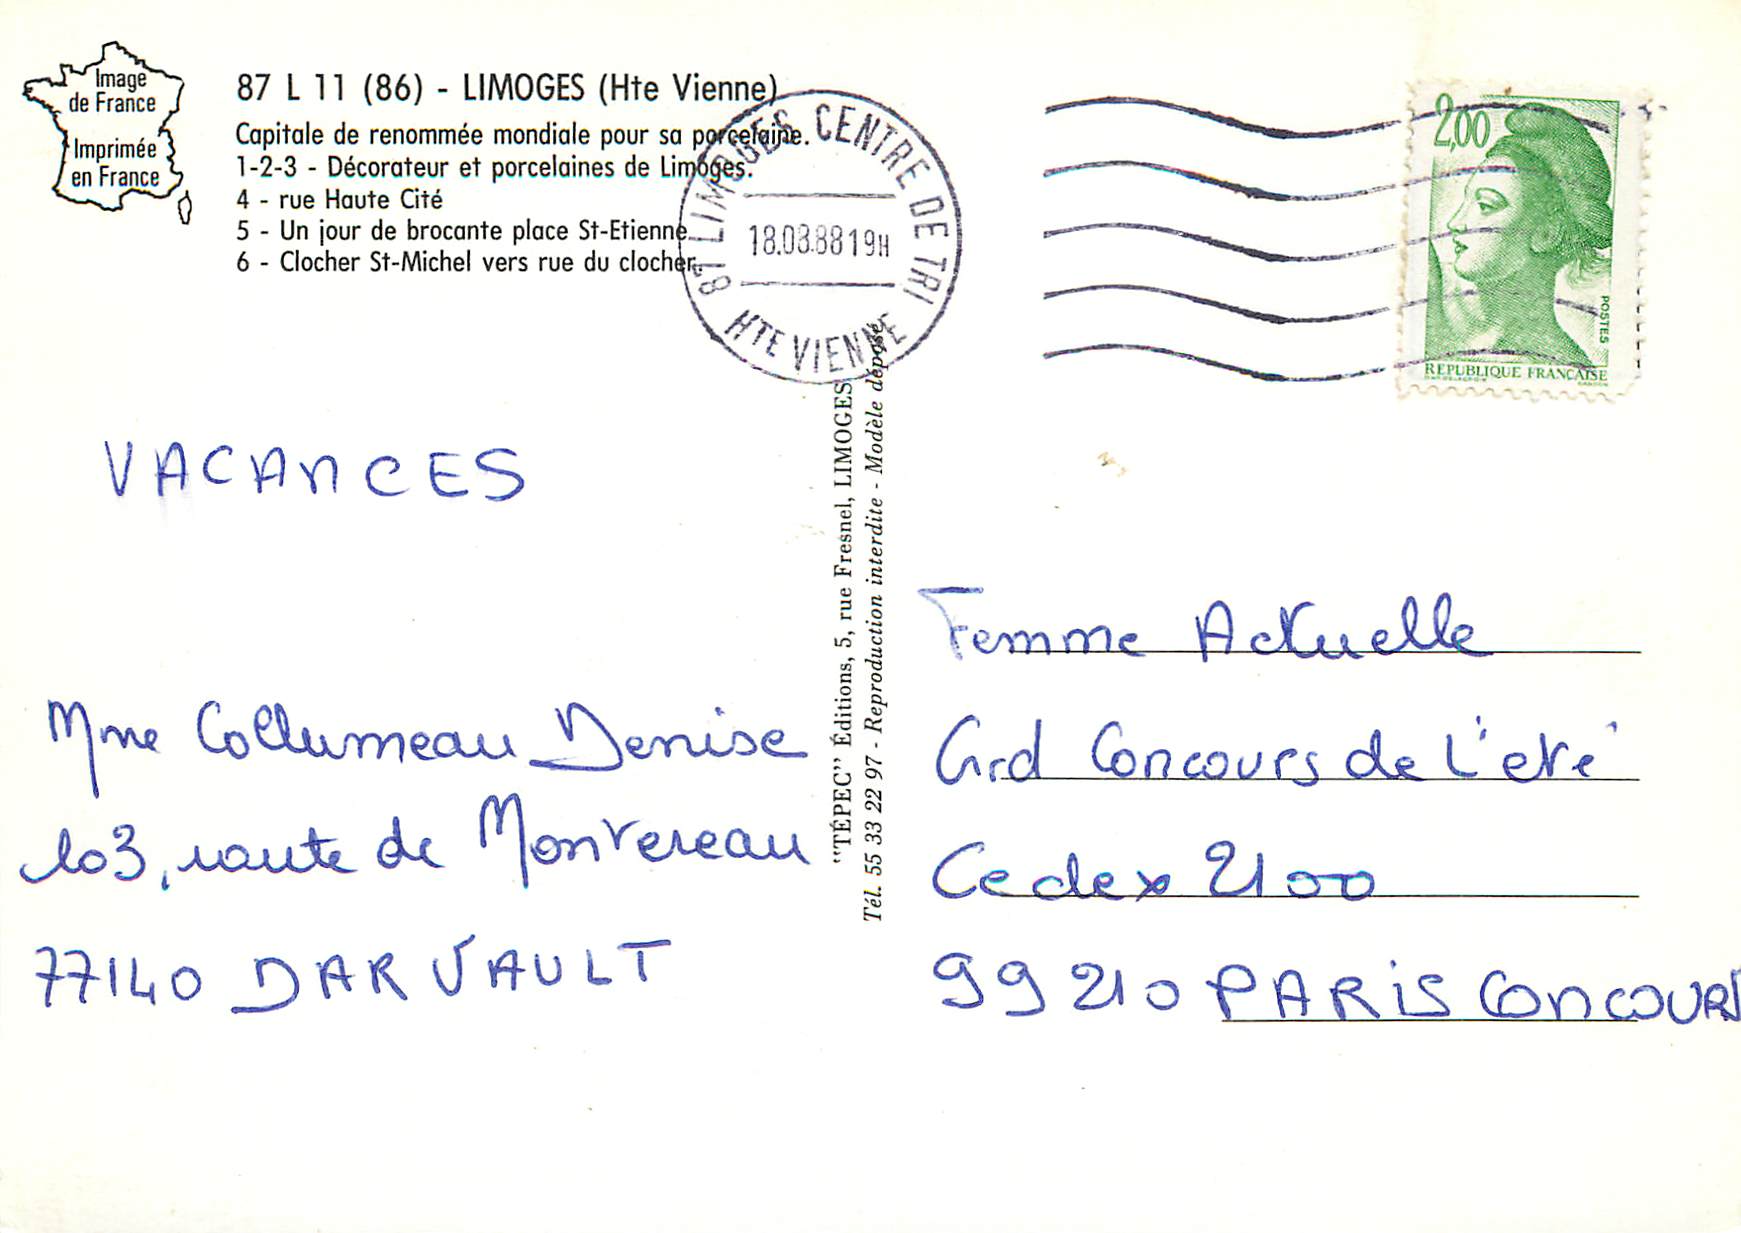 Image
de France
Imprimée
en France
87 L 11 (86) - LIMOGES (Hte Vienne)
Capitale de renommée mondiale pour sa porcelaine.
1-2-3 - Décorateur et porcelaines de Limoges.
4 - rue Haute Cité
5 - Un jour de brocante place St-Etienne
6 - Clocher St-Michel vers rue du clocher.
87 LIMOGES CENTRE DE TRI
18.08.88 19H
HTE VIENNE
2,00
POSTES
REPUBLIQUE FRANÇAISE
VACANCES
Mme Collumeau Denise
103, route de Montereau
77140 DARVAULT
"TÉPEC" Éditions, 5, rue Fresnel, LIMOGES
Tél. 55 33 22 97 - Reproduction interdite - Modèle déposé
Femme Actuelle
Grd Concours de L'eté
Cedex 2100
99210 PARIS CONCOURS